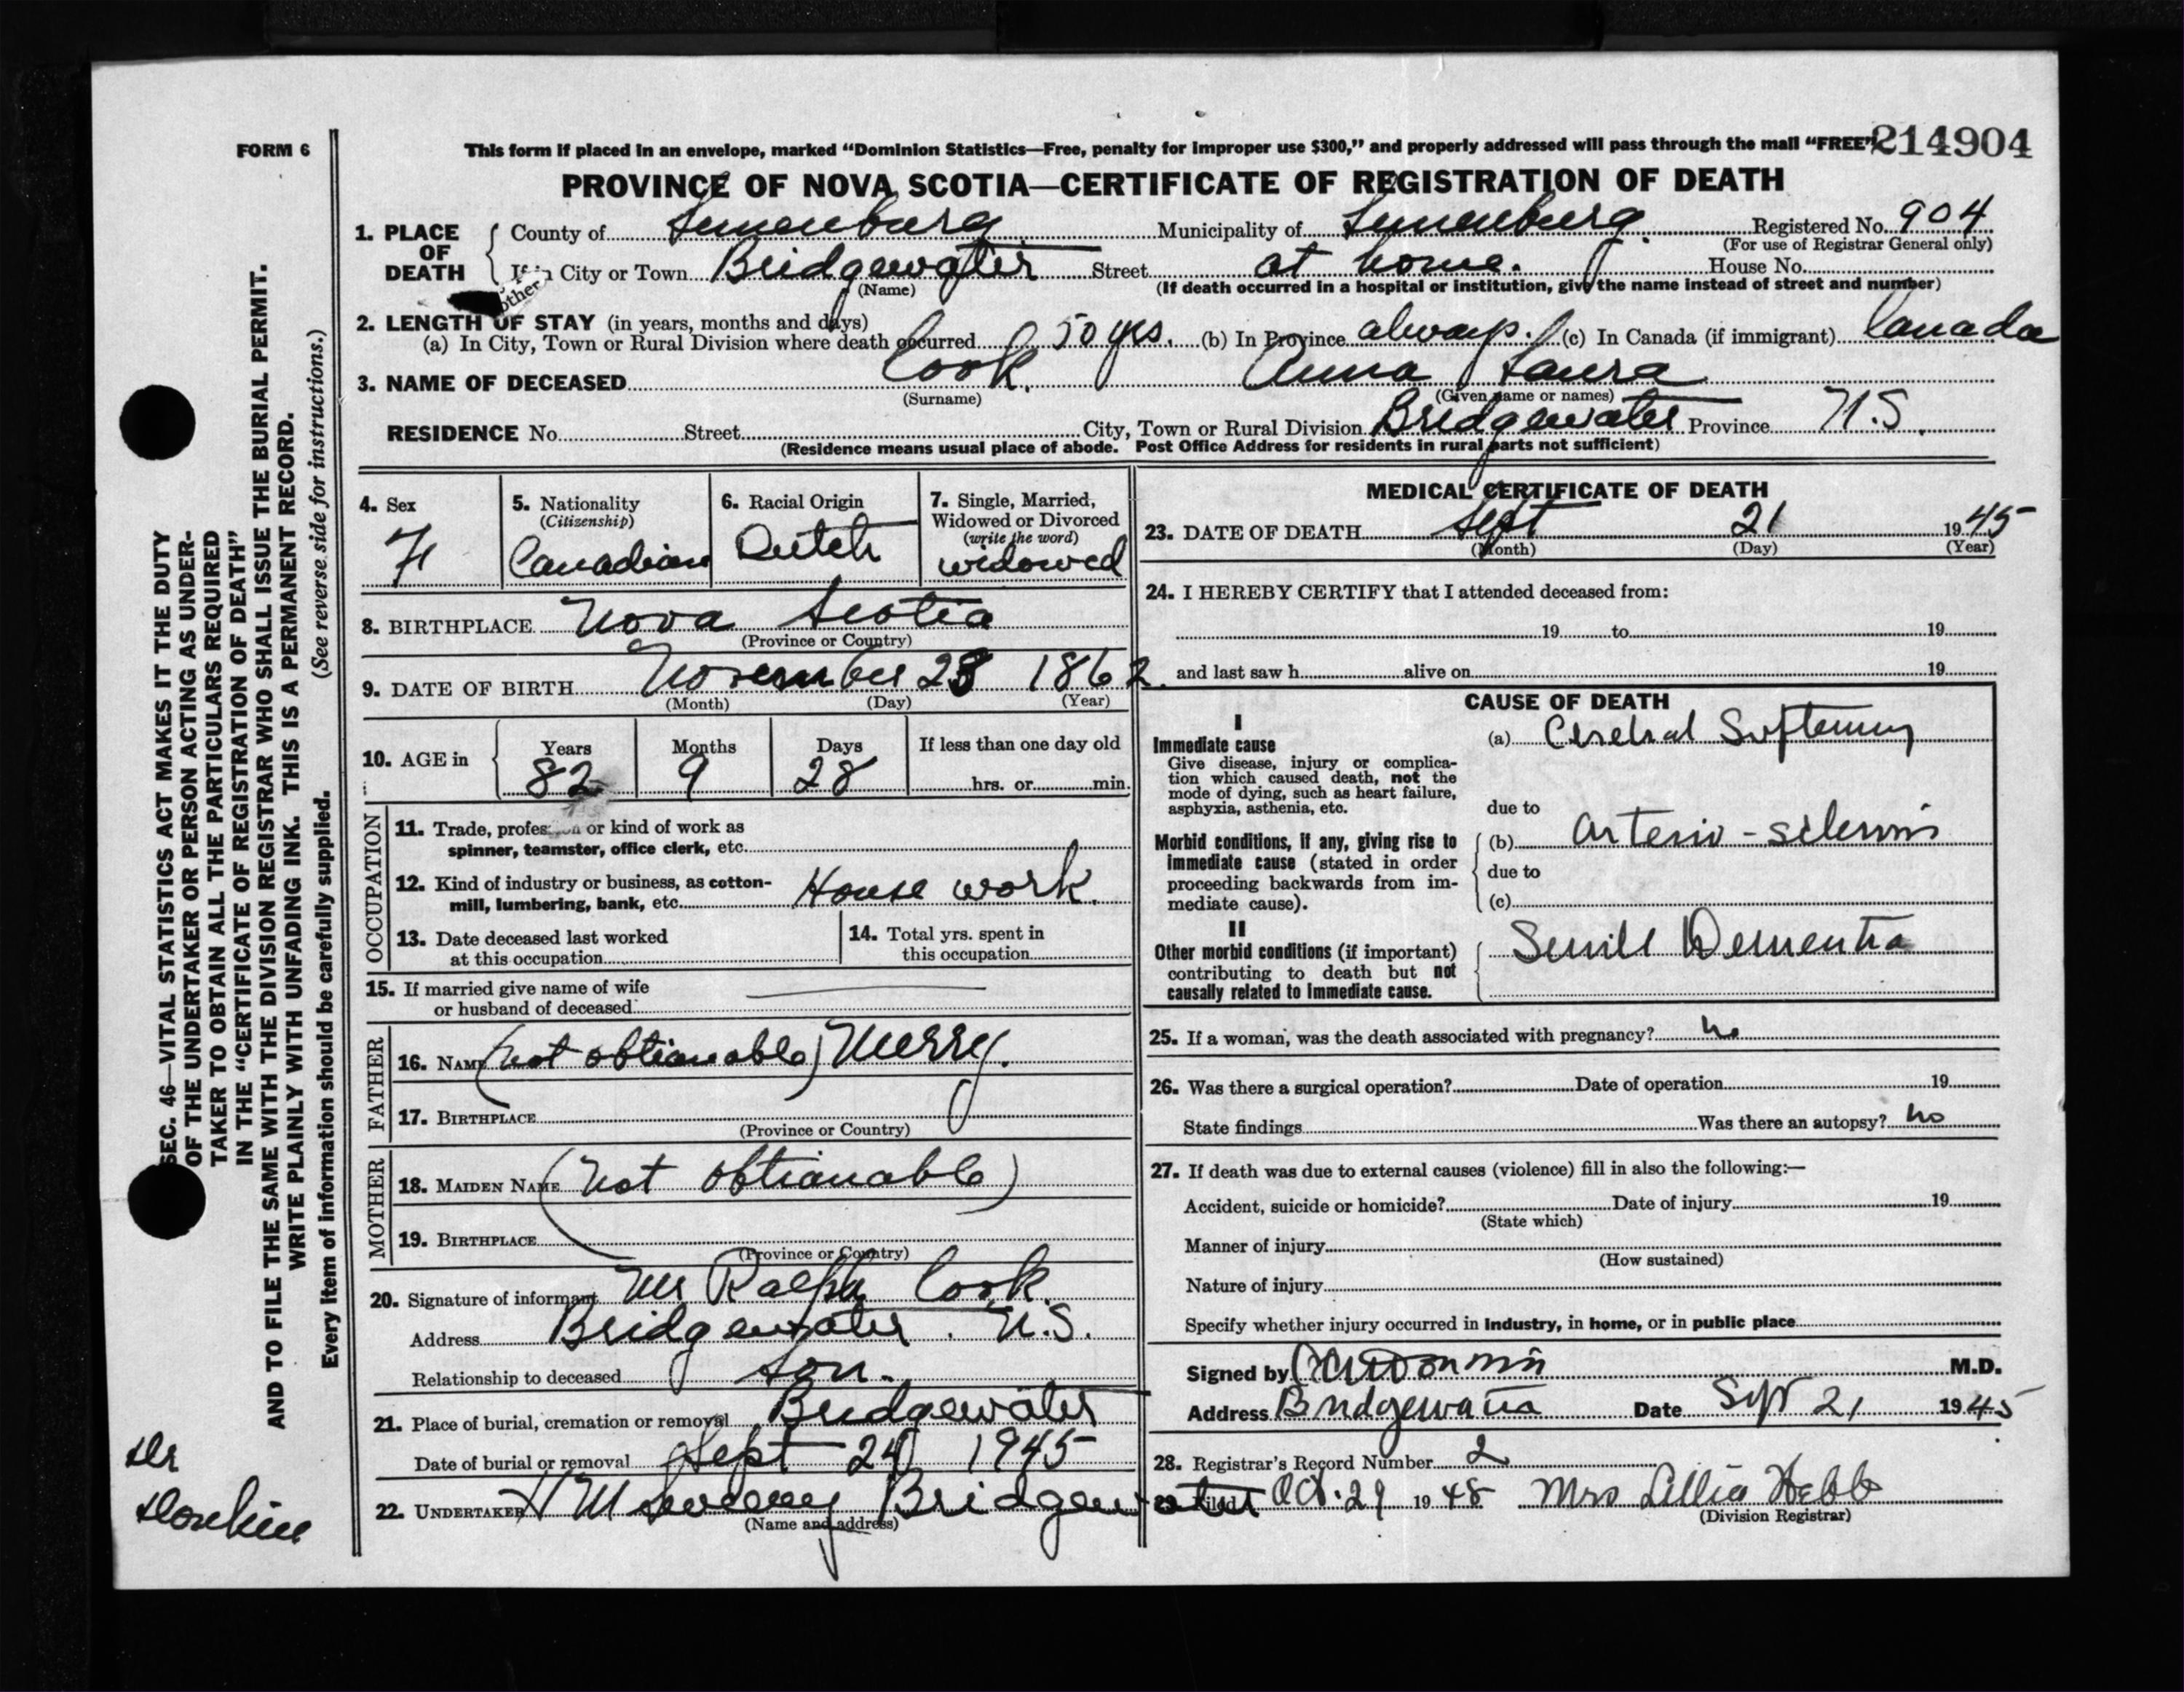 FORM 6
This form if placed in an envelope, marked "Dominion Statistics—Free, penalty for improper use $300," and properly addressed will pass through the mail "FREE"
214904
PROVINCE OF NOVA SCOTIA—CERTIFICATE OF REGISTRATION OF DEATH
1. PLACE OF DEATH
County of Lunenburg Municipality of Lunenburg. Registered No. 904
(For use of Registrar General only)
City or Town Bridgewater Street at home. House No.
(Name) (If death occurred in a hospital or institution, give the name instead of street and number)
other
2. LENGTH OF STAY (in years, months and days)
(a) In City, Town or Rural Division where death occurred 50 yrs. (b) In Province always. (c) In Canada (if immigrant) Canada
3. NAME OF DECEASED Cook. Anna Laura
(Surname) (Given name or names)
RESIDENCE No. Street City, Town or Rural Division Bridgewater Province N.S.
(Residence means usual place of abode. Post Office Address for residents in rural parts not sufficient)
4. Sex
F
5. Nationality
(Citizenship)
Canadian
6. Racial Origin
Dutch
7. Single, Married,
Widowed or Divorced
(write the word)
widowed
8. BIRTHPLACE Nova Scotia
(Province or Country)
9. DATE OF BIRTH November 23 1862.
(Month) (Day) (Year)
10. AGE in Years Months Days If less than one day old
82 9 28 hrs. or min.
OCCUPATION
11. Trade, profession or kind of work as
spinner, teamster, office clerk, etc.
12. Kind of industry or business, as cotton-
mill, lumbering, bank, etc. House work.
13. Date deceased last worked
at this occupation
14. Total yrs. spent in
this occupation
15. If married give name of wife
or husband of deceased
FATHER
16. NAME (not obtianable) Merry.
17. BIRTHPLACE
(Province or Country)
MOTHER
18. MAIDEN NAME (Not obtianable)
19. BIRTHPLACE
(Province or Country)
20. Signature of informant Mr Ralph Cook.
Address Bridgewater. N.S.
Relationship to deceased son.
21. Place of burial, cremation or removal Bridgewater
Date of burial or removal Sept 24 1945
22. UNDERTAKER Bridgewater
(Name and address)
MEDICAL CERTIFICATE OF DEATH
23. DATE OF DEATH Sept 21 1945
(Month) (Day) (Year)
24. I HEREBY CERTIFY that I attended deceased from:
19 to 19
and last saw h alive on 19
CAUSE OF DEATH
I
Immediate cause
Give disease, injury or complica-
tion which caused death, not the
mode of dying, such as heart failure,
asphyxia, asthenia, etc.
(a) Cerebral Softening
due to
Morbid conditions, if any, giving rise to
immediate cause (stated in order
proceeding backwards from im-
mediate cause).
(b) Arterio-sclerosis
due to
(c)
II
Other morbid conditions (if important)
contributing to death but not
causally related to immediate cause.
Senile Dementia
25. If a woman, was the death associated with pregnancy? no
26. Was there a surgical operation? Date of operation 19
State findings Was there an autopsy? no
27. If death was due to external causes (violence) fill in also the following:—
Accident, suicide or homicide? Date of injury 19
(State which)
Manner of injury
(How sustained)
Nature of injury
Specify whether injury occurred in industry, in home, or in public place
Signed by M.D.
Address Bridgewater Date Sept 21 1945
28. Registrar's Record Number 2
Filed Oct. 29 1945 Mrs Lillia Hebb
(Division Registrar)
SEC. 46—VITAL STATISTICS ACT MAKES IT THE DUTY
OF THE UNDERTAKER OR PERSON ACTING AS UNDER-
TAKER TO OBTAIN ALL THE PARTICULARS REQUIRED
IN THE "CERTIFICATE OF REGISTRATION OF DEATH"
AND TO FILE THE SAME WITH THE DIVISION REGISTRAR WHO SHALL ISSUE THE BURIAL PERMIT.
WRITE PLAINLY WITH UNFADING INK. THIS IS A PERMANENT RECORD.
Every item of information should be carefully supplied. (See reverse side for instructions.)
Dr